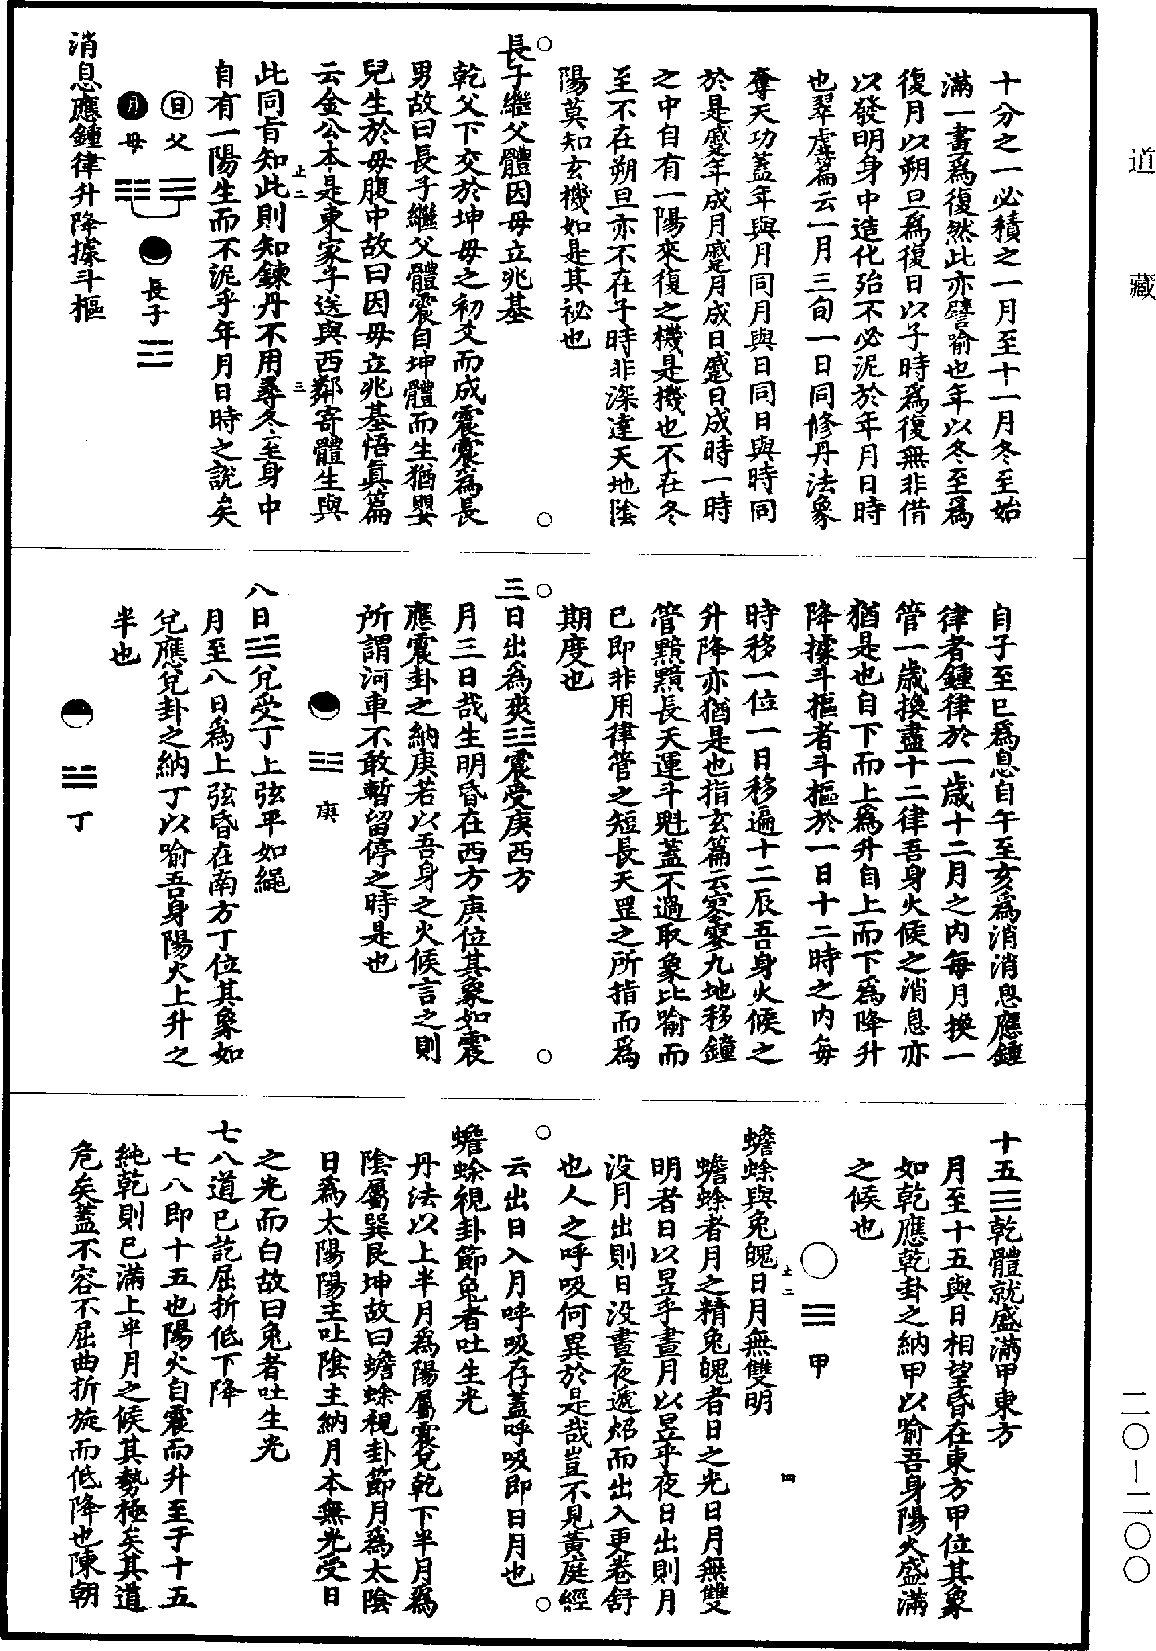 道藏
二〇—二〇〇
十分之一必積之一月至十一月冬至始
滿一畫爲復然此亦譬喻也年以冬至爲
復月以朔旦爲復日以子時爲復無非借
以發明身中造化殆不必泥於年月日時
也翠虛篇云一月三旬一日同修丹法象
奪天功蓋年與月同月與日同日與時同
於是蹙年成月蹙月成日蹙日成時一時
之中自有一陽來復之機是機也不在冬
至不在朔旦亦不在子時非深達天地陰
陽莫知玄機如是其祕也
○ ○
長子繼父體因母立兆基
乾父下交於坤母之初爻而成震震爲長
男故曰長子繼父體震自坤體而生猶嬰
兒生於母腹中故曰因母立兆基悟眞篇
云金公本是東家子送與西鄰寄體生與
上二 三
此同旨知此則知鍊丹不用尋冬至身中
自有一陽生而不泥乎年月日時之說矣
日 父 ☰
月 母 ☷
長子 ☳
消息應鍾律升降據斗樞
自子至巳爲息自午至亥爲消消息應鍾
律者鍾律於一歲十二月之內每月換一
管一歲換盡十二律吾身火候之消息亦
猶是也自下而上爲升自上而下爲降升
降據斗樞者斗樞於一日十二時之內每
時移一位一日移遍十二辰吾身火候之
升降亦猶是也指玄篇云寥寥九地移鐘
管黯黯長天運斗魁蓋不過取象比喻而
已即非用律管之短長天罡之所指而爲
期度也
○ ○
三日出爲爽☳震受庚西方
月三日哉生明昏在西方庚位其象如震
應震卦之納庚若以吾身之火候言之則
所謂河車不敢暫留停之時是也
☳ 庚
八日☱兌受丁上弦平如繩
月至八日爲上弦昏在南方丁位其象如
兌應兌卦之納丁以喻吾身陽火上升之
半也
☱ 丁
十五☰乾體就盛滿甲東方
月至十五與日相望昏在東方甲位其象
如乾應乾卦之納甲以喻吾身陽火盛滿
之候也
○ ☰ 甲
上二 四
蟾蜍與兔魄日月無雙明
蟾蜍者月之精兔魄者日之光日月無雙
明者日以昱乎晝月以昱乎夜日出則月
沒月出則日沒晝夜遞炤而出入更卷舒
也人之呼吸何異於是哉豈不見黃庭經
云出日入月呼吸存蓋呼吸即日月也
○ ○
蟾蜍視卦節兔者吐生光
丹法以上半月爲陽屬震兌乾下半月爲
陰屬巽艮坤故曰蟾蜍視卦節月爲太陰
日爲太陽陽主吐陰主納月本無光受日
之光而白故曰兔者吐生光
七八道已訖屈折低下降
七八即十五也陽火自震而升至于十五
純乾則已滿上半月之候其勢極矣其道
危矣蓋不容不屈曲折旋而低降也陳朝